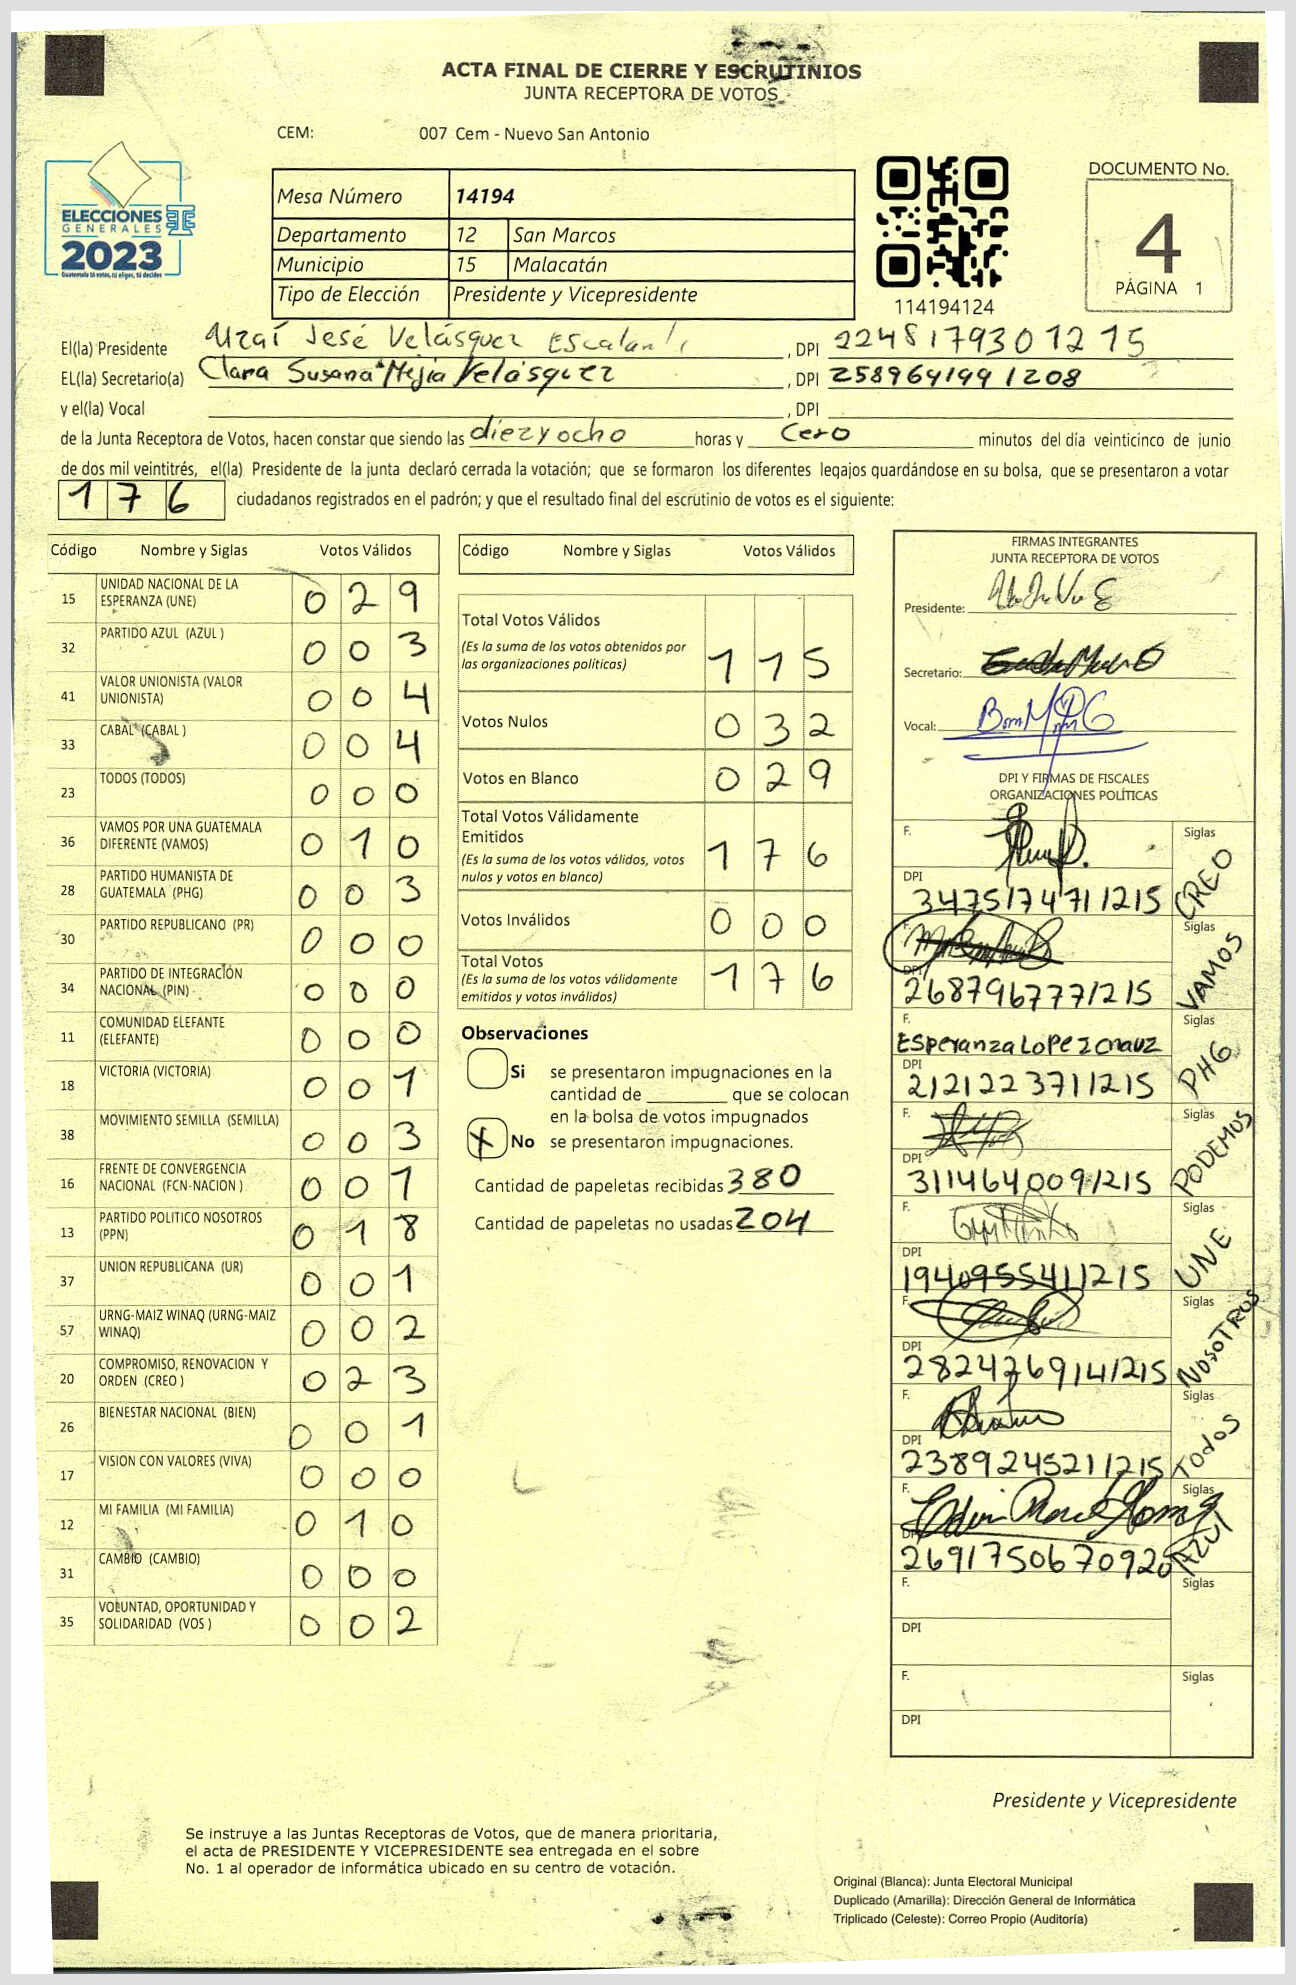 ACTA FINAL DE CIERRE Y ESCRUTINIOS
JUNTA RECEPTORA DE VOTOS
CEM: 007 Cem - Nuevo San Antonio
ELECCIONES
GENERALES
2023
Guatemala tú votas, tú eliges, tú decides
Mesa Número 14194
Departamento 12 San Marcos
Municipio 15 Malacatán
Tipo de Elección Presidente y Vicepresidente
114194124
DOCUMENTO No.
4
PÁGINA 1
El(la) Presidente Uzaí José Velásquez Escalante, DPI 2248179301215
EL(la) Secretario(a) Clara Susana Mejía Velásquez, DPI 2589641991208
y el(la) Vocal , DPI
de la Junta Receptora de Votos, hacen constar que siendo las diez y ocho horas y cero minutos del día veinticinco de junio
de dos mil veintitrés, el(la) Presidente de la junta declaró cerrada la votación; que se formaron los diferentes legajos guardándose en su bolsa, que se presentaron a votar
176 ciudadanos registrados en el padrón; y que el resultado final del escrutinio de votos es el siguiente:
Código Nombre y Siglas Votos Válidos
15 UNIDAD NACIONAL DE LA ESPERANZA (UNE) 029
32 PARTIDO AZUL (AZUL ) 003
41 VALOR UNIONISTA (VALOR UNIONISTA) 004
33 CABAL (CABAL ) 004
23 TODOS (TODOS) 000
36 VAMOS POR UNA GUATEMALA DIFERENTE (VAMOS) 010
28 PARTIDO HUMANISTA DE GUATEMALA (PHG) 003
30 PARTIDO REPUBLICANO (PR) 000
34 PARTIDO DE INTEGRACIÓN NACIONAL (PIN) 000
11 COMUNIDAD ELEFANTE (ELEFANTE) 000
18 VICTORIA (VICTORIA) 001
38 MOVIMIENTO SEMILLA (SEMILLA) 003
16 FRENTE DE CONVERGENCIA NACIONAL (FCN-NACION ) 001
13 PARTIDO POLITICO NOSOTROS (PPN) 018
37 UNION REPUBLICANA (UR) 001
57 URNG-MAIZ WINAQ (URNG-MAIZ WINAQ) 002
20 COMPROMISO, RENOVACION Y ORDEN (CREO ) 023
26 BIENESTAR NACIONAL (BIEN) 001
17 VISION CON VALORES (VIVA) 000
12 MI FAMILIA (MI FAMILIA) 010
31 CAMBIO (CAMBIO) 000
35 VOLUNTAD, OPORTUNIDAD Y SOLIDARIDAD (VOS ) 002
Código Nombre y Siglas Votos Válidos
Total Votos Válidos
(Es la suma de los votos obtenidos por
las organizaciones políticas) 115
Votos Nulos 032
Votos en Blanco 029
Total Votos Válidamente
Emitidos
(Es la suma de los votos válidos, votos
nulos y votos en blanco) 176
Votos Inválidos 000
Total Votos
(Es la suma de los votos válidamente
emitidos y votos inválidos) 176
Observaciones
Si se presentaron impugnaciones en la
cantidad de ________ que se colocan
en la bolsa de votos impugnados
X No se presentaron impugnaciones.
Cantidad de papeletas recibidas 380
Cantidad de papeletas no usadas 204
FIRMAS INTEGRANTES
JUNTA RECEPTORA DE VOTOS
Presidente:
Secretario:
Vocal:
DPI Y FIRMAS DE FISCALES
ORGANIZACIONES POLÍTICAS
F. Siglas CREO
DPI 3475174711215
F. Siglas VAMOS
DPI 2687967771215
F. Esperanza Lopez Siglas PHG
DPI 2121223711215
F. Siglas PODEMOS
DPI 3114640091215
F. Siglas UNE
DPI 1940955411215
F. Siglas NOSOTROS
DPI 2824269141215
F. Siglas TODOS
DPI 2389245211215
F. Siglas AZUL
DPI 2691750670920
F. Siglas
DPI
F. Siglas
DPI
Presidente y Vicepresidente
Se instruye a las Juntas Receptoras de Votos, que de manera prioritaria,
el acta de PRESIDENTE Y VICEPRESIDENTE sea entregada en el sobre
No. 1 al operador de informática ubicado en su centro de votación.
Original (Blanca): Junta Electoral Municipal
Duplicado (Amarilla): Dirección General de Informática
Triplicado (Celeste): Correo Propio (Auditoría)